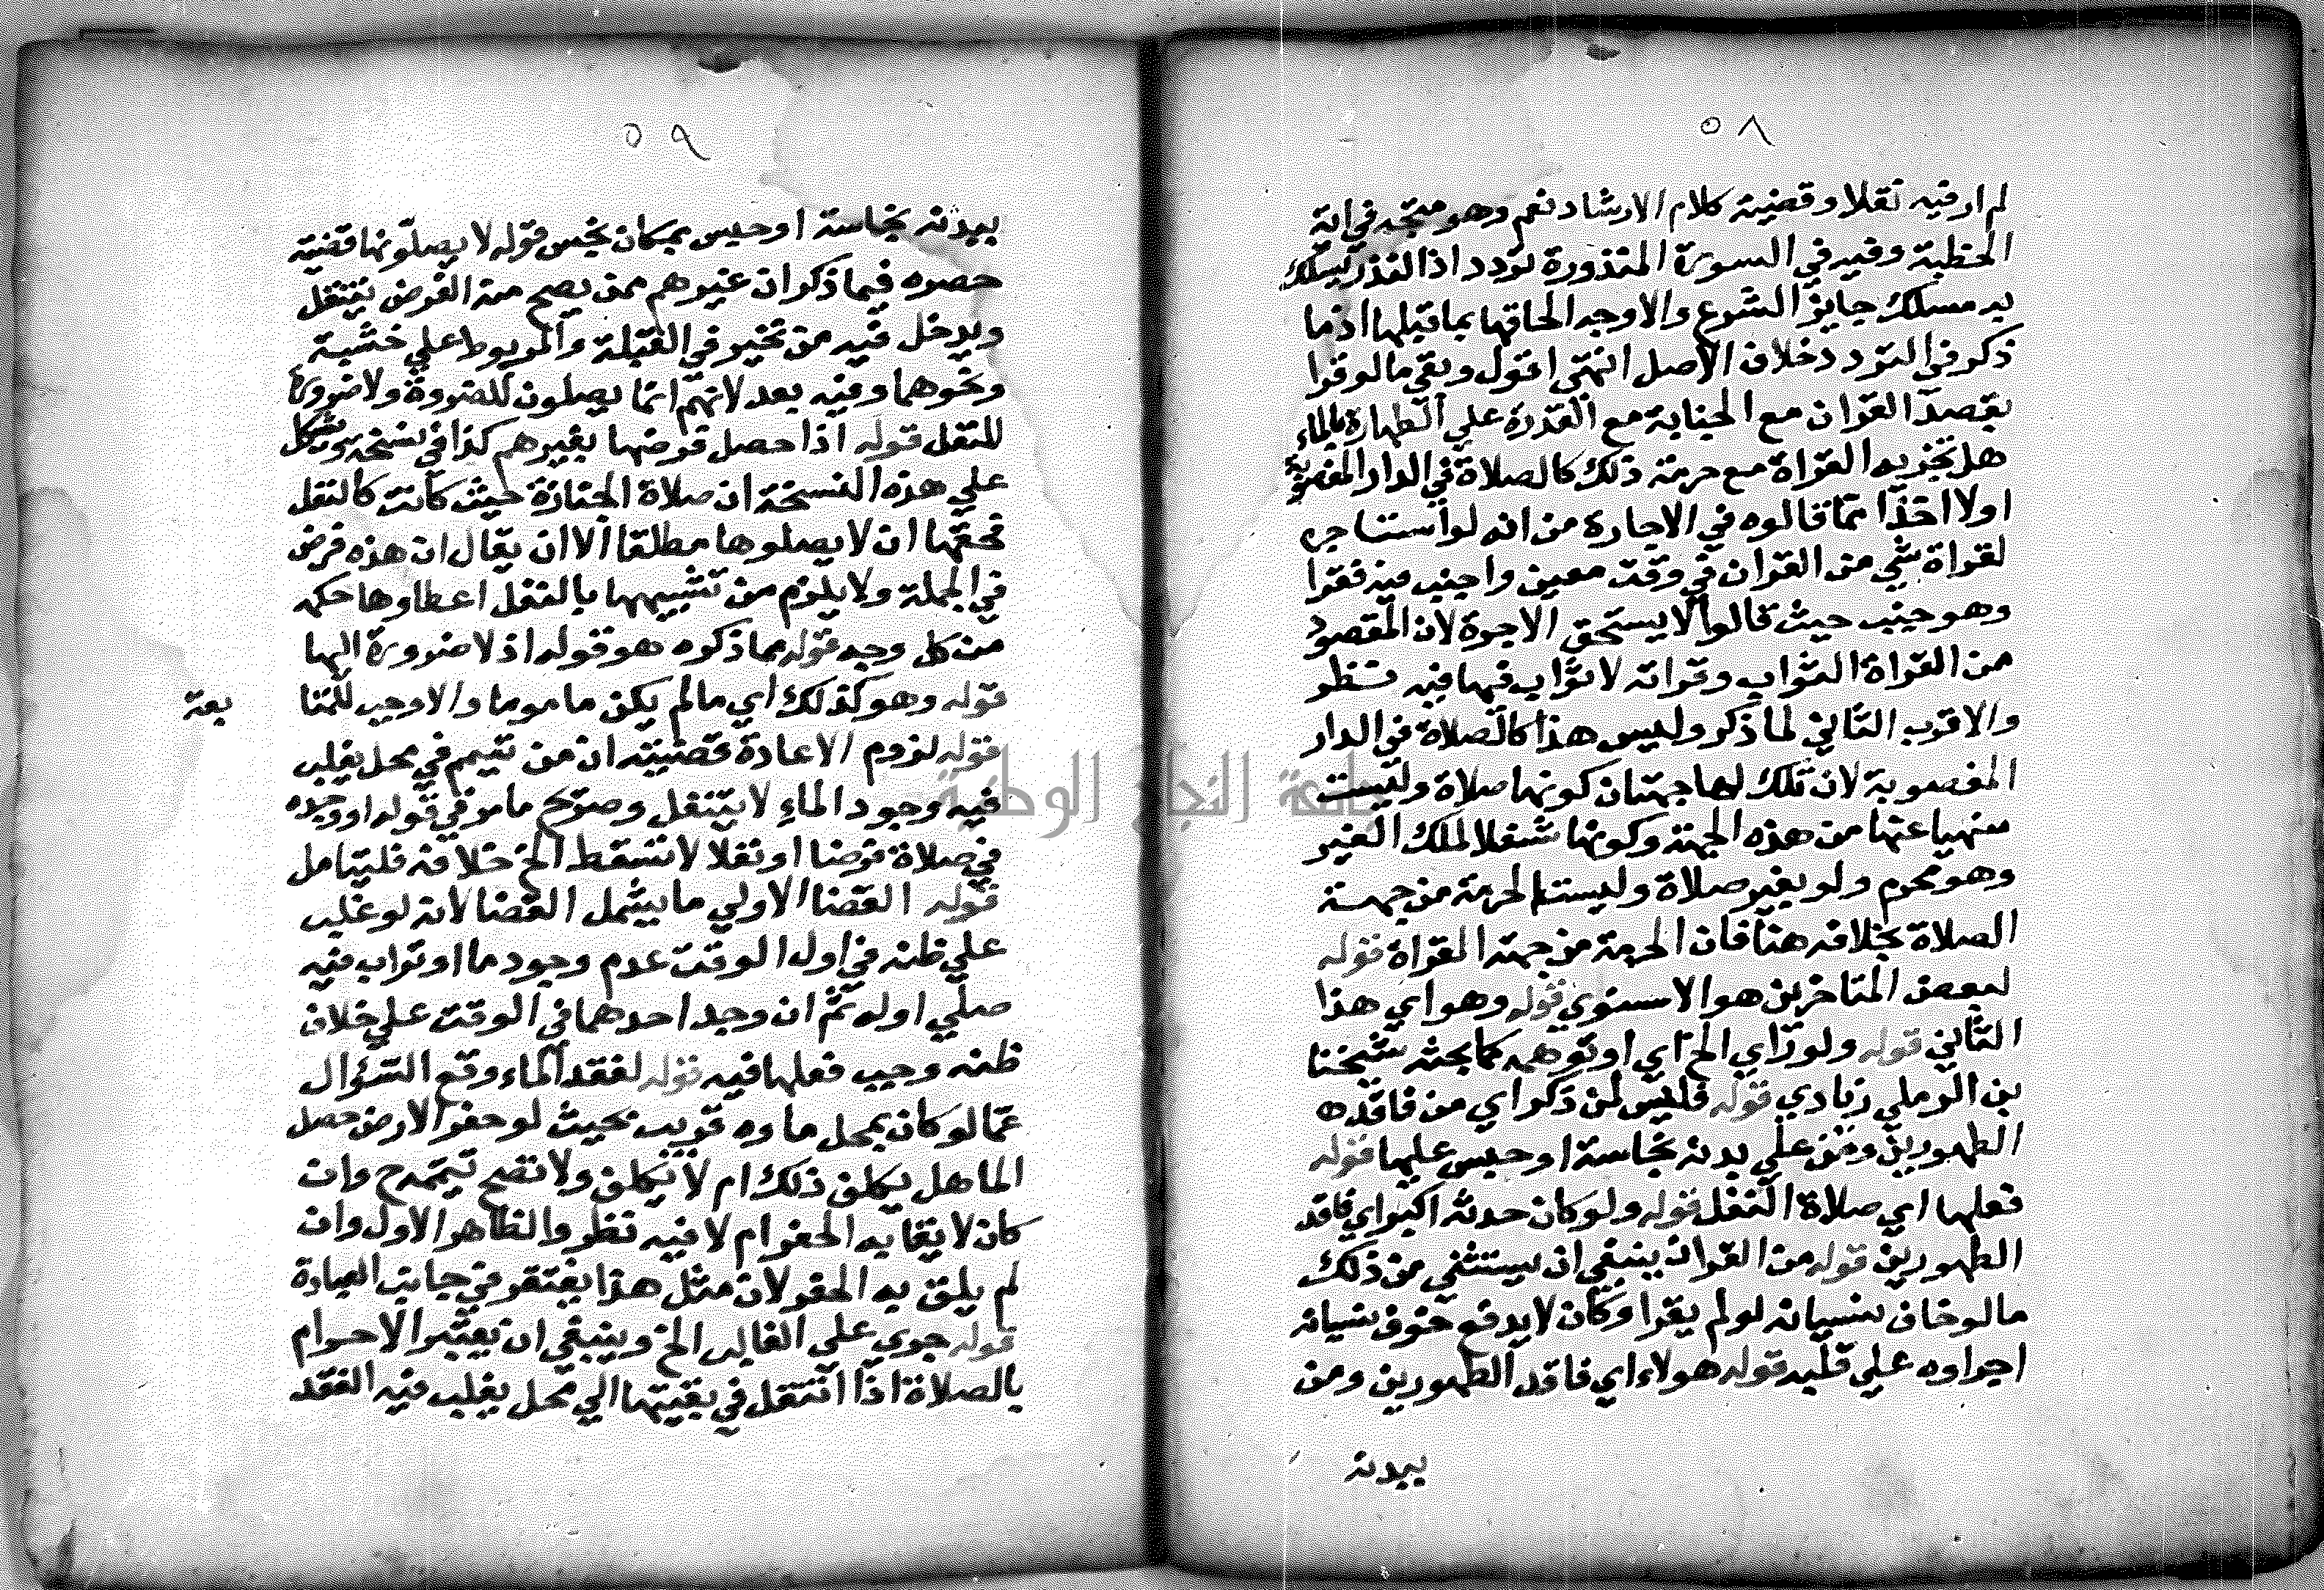 ٥٨
لم ار فيه نقلا وقضية كلام الارشاد نعم وهو متجه في اية
الخطبة وفيه في السورة المنذورة تردد اذ النذر يسلك
به مسلك جايز الشرع والاوجه الحاقها بما قبلها اذ ما
ذكر في التردد خلاف الاصل انتهى اقول وبقي ما لو قرا
بقصد القران مع الجنابة مع القدرة علي الطهارة بالماء
هل تجزيه القراة مع حرمة ذلك كالصلاة في الدار المغصوبة
اولا اخذا مما قالوه في الاجارة من انه لو استاجره
لقراة شي من القران في وقت معين واجنب فيه فقرا
وهو جنب حيث قالوا لا يستحق الاجرة لان المقصود
من القراة الثواب وقراته لا ثواب فيها فيه نظر
والاقرب الثاني لما ذكر وليس هذا كالصلاة في الدار
المغصوبة لان تلك لها جهتان كونها صلاة وليست
منهيا عنها من هذه الجهة وكونها شغلا لملك الغير
وهو محرم ولو بغير صلاة وليست الحرمة من جهة
الصلاة بخلافه هنا فان الحرمة من جهة القراة قوله
لبعض المتاخرين هو الاسنوي قوله وهو اي هذا
الثاني قوله ولو راي الخ اي او توهمه كما بحثه شيخنا
بن الرملي زيادي قوله فليس لمن ذكر اي من فاقد
الطهورين ومن علي بدنه نجاسة او حبس عليها قوله
فعلها اي صلاة النفل قوله ولو كان حدثه اكبر اي فاقد
الطهورين قوله من القران ينبغي ان يستثني من ذلك
ما لو خاف نسيانه لو لم يقرا وكان لا يدفع خوف نسيانه
اجراوه علي قلبه قوله هولاء اي فاقد الطهورين ومن
ببدنه
٥٩
ببدنه نجاسة او حبس بمكان نجس قوله لا يصلونها قضية
حصره فيما ذكر ان غيرهم ممن يصح منه الفرض يتنفل
ويدخل فيه من تحير في القبلة والمربوط علي خشبة
ونحوهما وفيه بعد لانهم انما يصلون للضرورة ولا ضرورة
للنفل قوله اذا حصل فرضها بغيرهم كذا في نسخة ويشكل
علي هذه النسخة ان صلاة الجنازة حيث كانت كالنفل
فحقها ان لا يصلوها مطلقا الا ان يقال ان هذه فرض
في الجملة ولا يلزم من تشبيهها بالنفل اعطاوها حكمه
من كل وجه قوله مما ذكره هو قوله اذ لا ضرورة اليها
قوله وهو كذلك اي ما لم يكن ماموما والاوجب للمتا
بعة
قوله لزوم الاعادة قضيته ان من تيمم في محل يغلب
فيه وجود الماء لا يتنفل وصرح ما مر في قوله او وجده
في صلاة فرضا او نفلا لا تسقط الخ خلافه فليتامل
قوله القضا الاولي ما يشمل القضا لانه لو غلب
علي ظنه في اول الوقت عدم وجود ما او تراب فيه
صلي اوله ثم ان وجد احدهما في الوقت علي خلاف
ظنه وجب فعلها فيه قوله لفقد الماء وقع السؤال
عما لو كان بمحل ماوه قريب بحيث لو حفر الارض حصل
الما هل يكلف ذلك ام لا يكلف ولا تصح تيممه ح وان
كان لا يقا به الحفر ام لا فيه نظر والظاهر الاول وان
لم يلق به الحفر لان مثل هذا يغتفر في جانب العبادة
قوله جري علي الغالب الخ وينبغي ان يعتبر الاحرام
بالصلاة اذا انتقل في بقيتها الي محل يغلب فيه الفقد